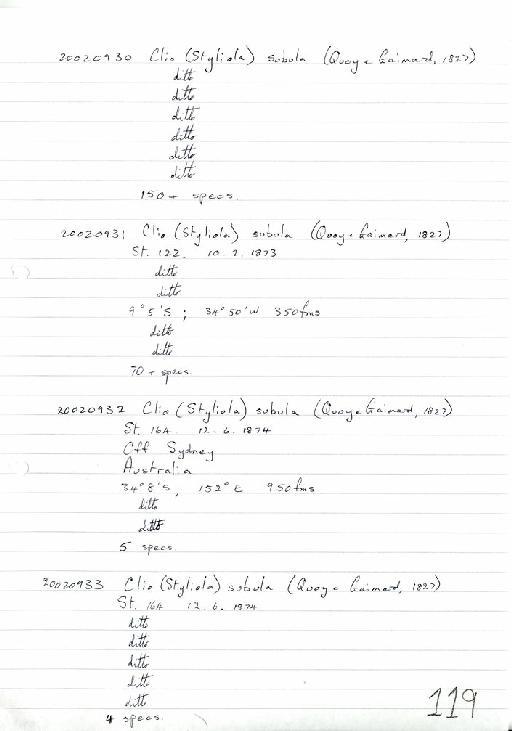 20020930 Clio (Styliola) subula (Quoy & Gaimard, 1827)
ditto
ditto
ditto
ditto
ditto
ditto
150+ specs.
20020931 Clio (Styliola) subula (Quoy & Gaimard, 1827)
St. 122. 10. 9. 1873
ditto
ditto
9° 5' S ; 34° 50' W 350 fms
ditto
ditto
70 + specs.
20020932 Clio (Styliola) subula (Quoy & Gaimard, 1827)
St. 16A. 12. 6. 1874
Off Sydney
Australia
34° 8' S, 152° E 950 fms
ditto
ditto
5 specs.
20020933 Clio (Styliola) subula (Quoy & Gaimard, 1827)
St. 16A 12. 6. 1874
ditto
ditto
ditto
ditto
ditto
4 specs.
119